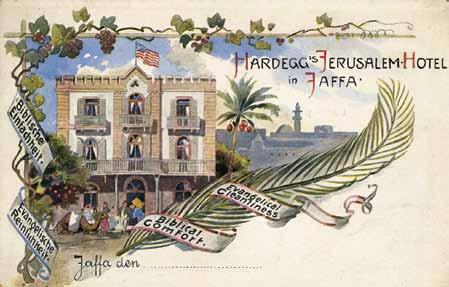 HARDEGG'S JERUSALEM-HOTEL
in JAFFA.
Biblische
Einfachheit.
Evangelische
Reinlichkeit.
Evangelical
Cleantiness
Biblical
Comfort.
Jaffa den